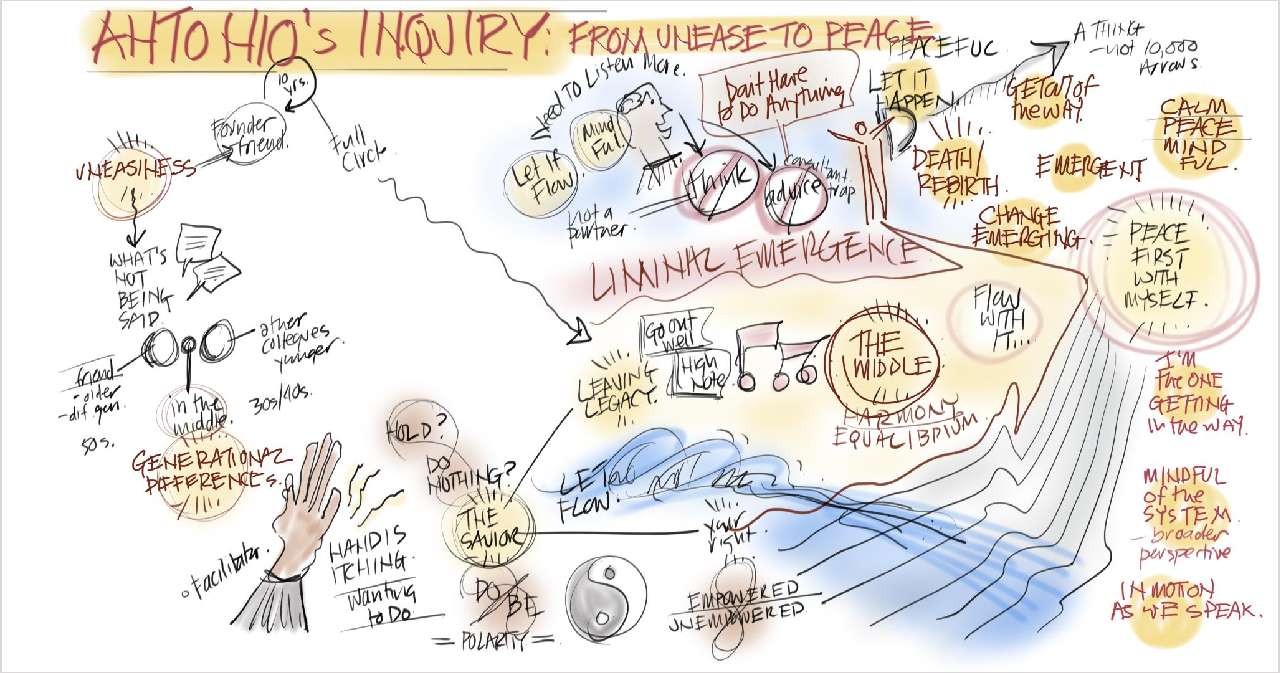 ANTONIO'S INQUIRY: FROM UNEASE TO PEACE
10
yrs.
Founder
friend.
UNEASINESS
Full
Circle
WHAT'S
NOT
BEING
SAID.
other
colleagues
younger.
30s/40s.
friend
- older
- dif. gen.
50s.
in the
middle.
GENERATIONAL
DIFFERENCES.
Facilitator.
HAND IS
ITCHING
Wanting
to Do
HOLD?
DO
NOTHING?
THE
SAVIOR
DO
BE
= POLARITY =
Need to Listen More.
Mind
Ful.
Let it
Flow
not a
partner.
think
advice
consultant
trap
Don't Have
to Do Anything
PEACEFUL
LET IT
HAPPEN
A THING
- not 10,000
Arrows.
GET OUT OF
the WAY.
DEATH/
REBIRTH.
EMERGENT
CHANGE
EMERGING.
CALM
PEACE
MIND
FUL.
LIMINAL EMERGENCE
Go Out
Well
High
Note
LEAVING
LEGACY.
THE
MIDDLE
HARMONY
EQUALIBRIUM
FLOW
WITH
IT...
LET
FLOW.
your
right.
EMPOWERED
UNEMPOWERED
PEACE
FIRST
WITH
MYSELF.
I'M
the ONE
GETTING
in the WAY.
MINDFUL
of the
SYSTEM
- broader
perspective
IN MOTION
AS WE SPEAK.